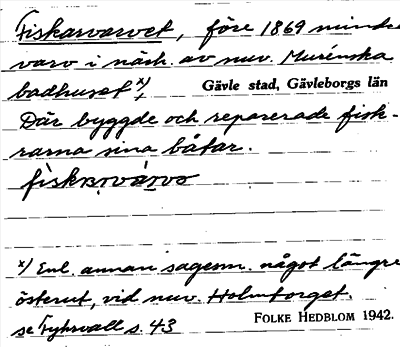 Fiskarvarvet, före 1869 mindre
varv i närh. av nuv. Murénska
badhuset x),
Gävle stad, Gävleborgs län
Där byggde och reparerade fisk-
rarna sina båtar.
x) Enl. annan sagesm. något längre
österut, vid nuv. Holmtorget.
se Fyhrvall s. 43
FOLKE HEDBLOM 1942.